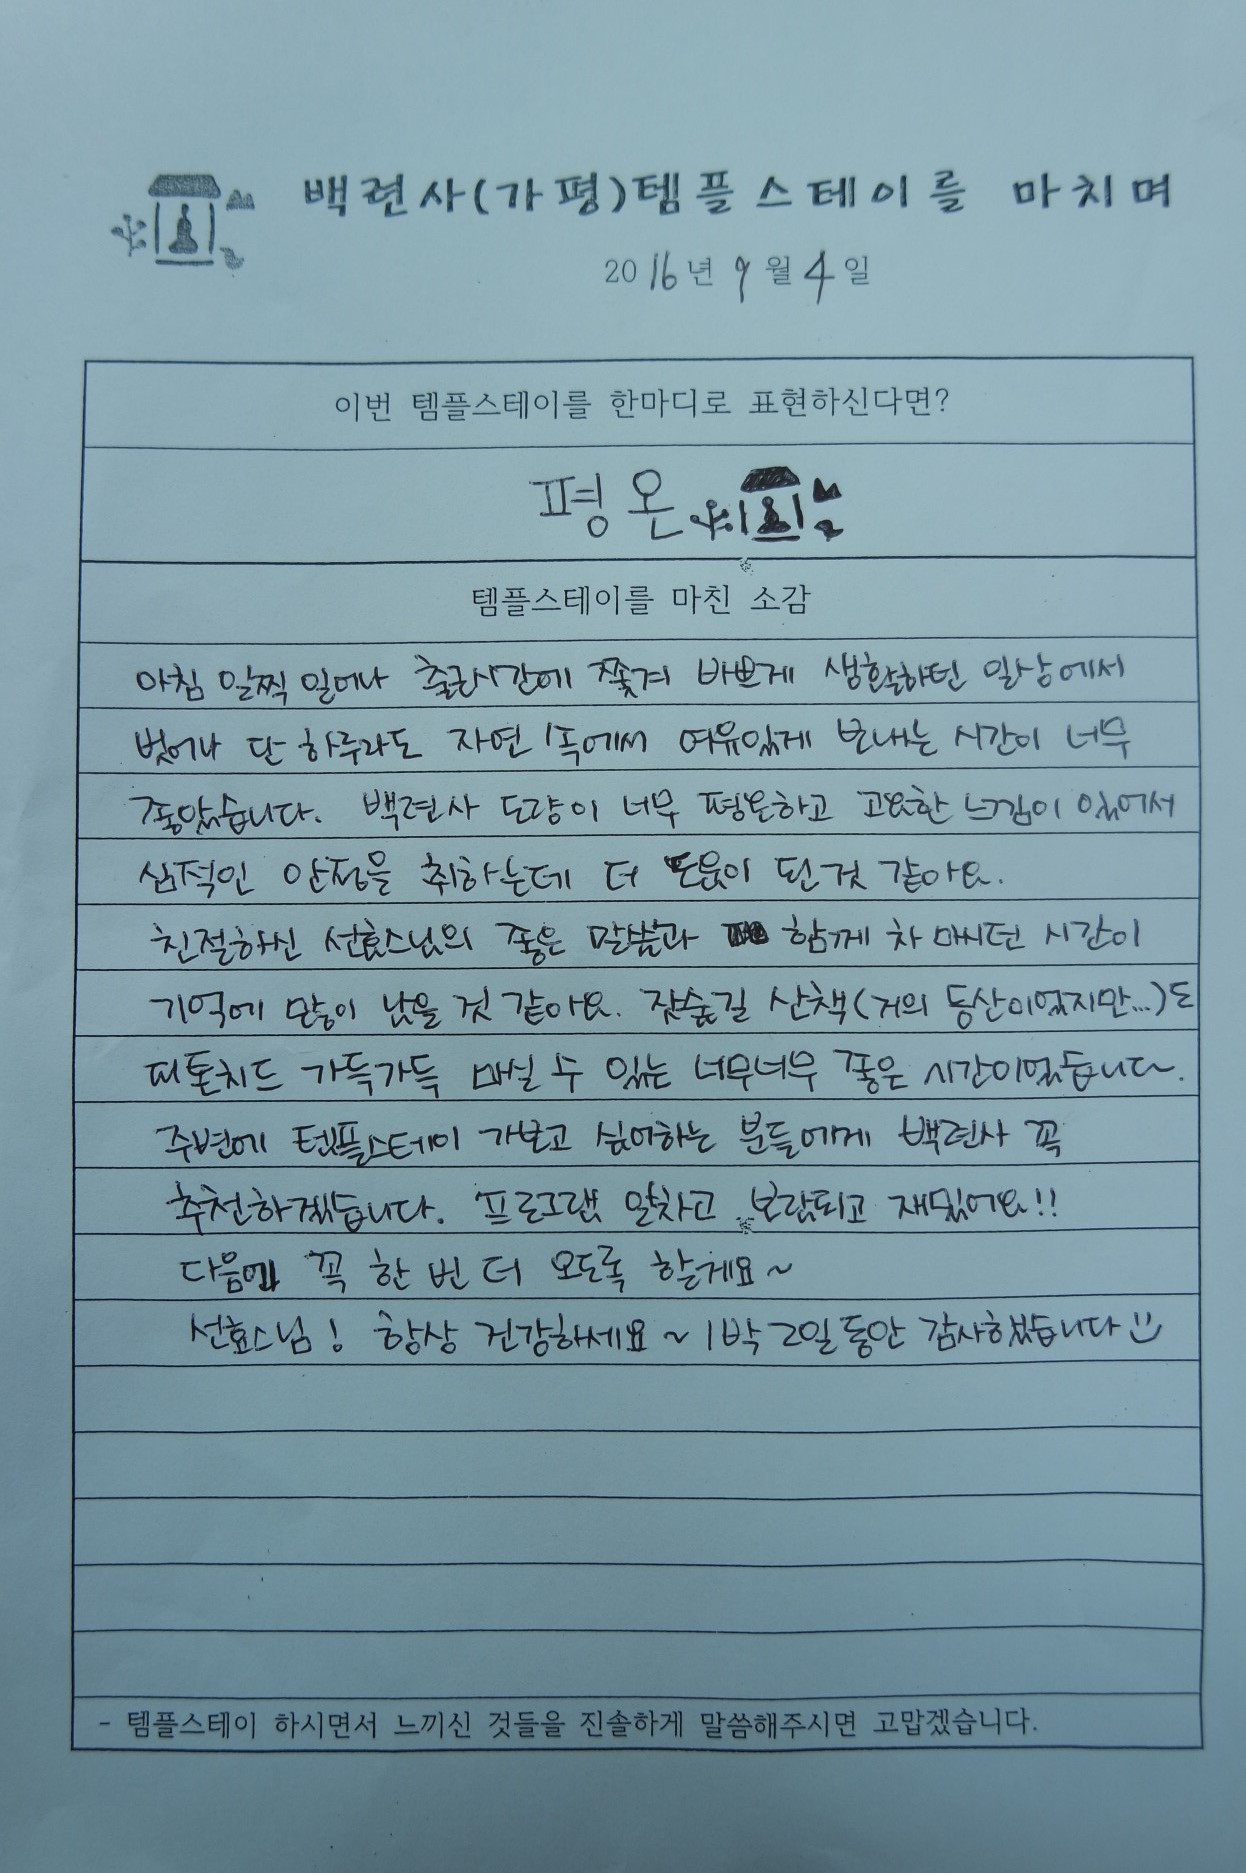 백련사(가평)템플스테이를 마치며
2016년 9월 4일
이번 템플스테이를 한마디로 표현하신다면?
평온
템플스테이를 마친 소감
아침 일찍 일어나 출근시간에 쫓겨 바쁘게 생활하던 일상에서
벗어나 단 하루라도 자연 속에서 여유있게 보내는 시간이 너무
좋았습니다. 백련사 도량이 너무 평온하고 고요한 느낌이 있어서
심적인 안정을 취하는데 더 도움이 된 것 같아요.
친절하신 선효스님의 좋은 말씀과 함께 차 마시던 시간이
기억에 많이 남을 것 같아요. 잣숲길 산책(거의 등산이었지만...)도
피톤치드 가득가득 마실 수 있는 너무너무 좋은 시간이었습니다.
주변에 템플스테이 가보고 싶어하는 분들에게 백련사 꼭
추천하겠습니다. 프로그램 알차고 보람되고 재밌어요!!
다음에 꼭 한 번 더 오도록 할게요~
선효스님! 항상 건강하세요~ 1박 2일 동안 감사했습니다
- 템플스테이 하시면서 느끼신 것들을 진솔하게 말씀해주시면 고맙겠습니다.